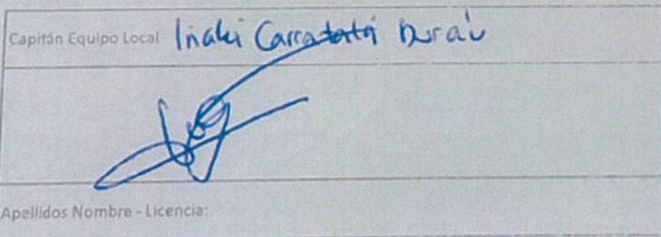 Capitán Equipo Local Iñaki Carratalá Durá
Apellidos Nombre - Licencia: